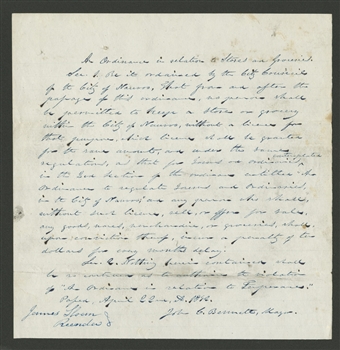 An Ordinance in relation to Stores and Groceries.
Sec. 1. Be it ordained by the City Council
of the City of Nauvoo, that from and after the
passage of this ordinance, no person shall
be permitted to keep a store or grocery
within the City of Nauvoo, without a license for
that purpose, which license shall be granted
for the same amount, and under the same
regulations, as that for Taverns and ordinaries,
in the 3rd Section of the ordinance entitled "An
Ordinance to regulate Taverns and Ordinaries,
in the City of Nauvoo," and any person who shall,
without such license, sell, or offer for sale,
any goods, wares, merchandize, or groceries, shall,
upon conviction thereof, incur a penalty of ten
dollars for every month's delay.
Sec. 2. Nothing herein contained shall
be so construed as to authorize the violation
of "An Ordinance in relation to Temperance."
Passed, April 22nd, A.D. 1841.
John C. Bennett, Mayor.
James Sloan
Recorder